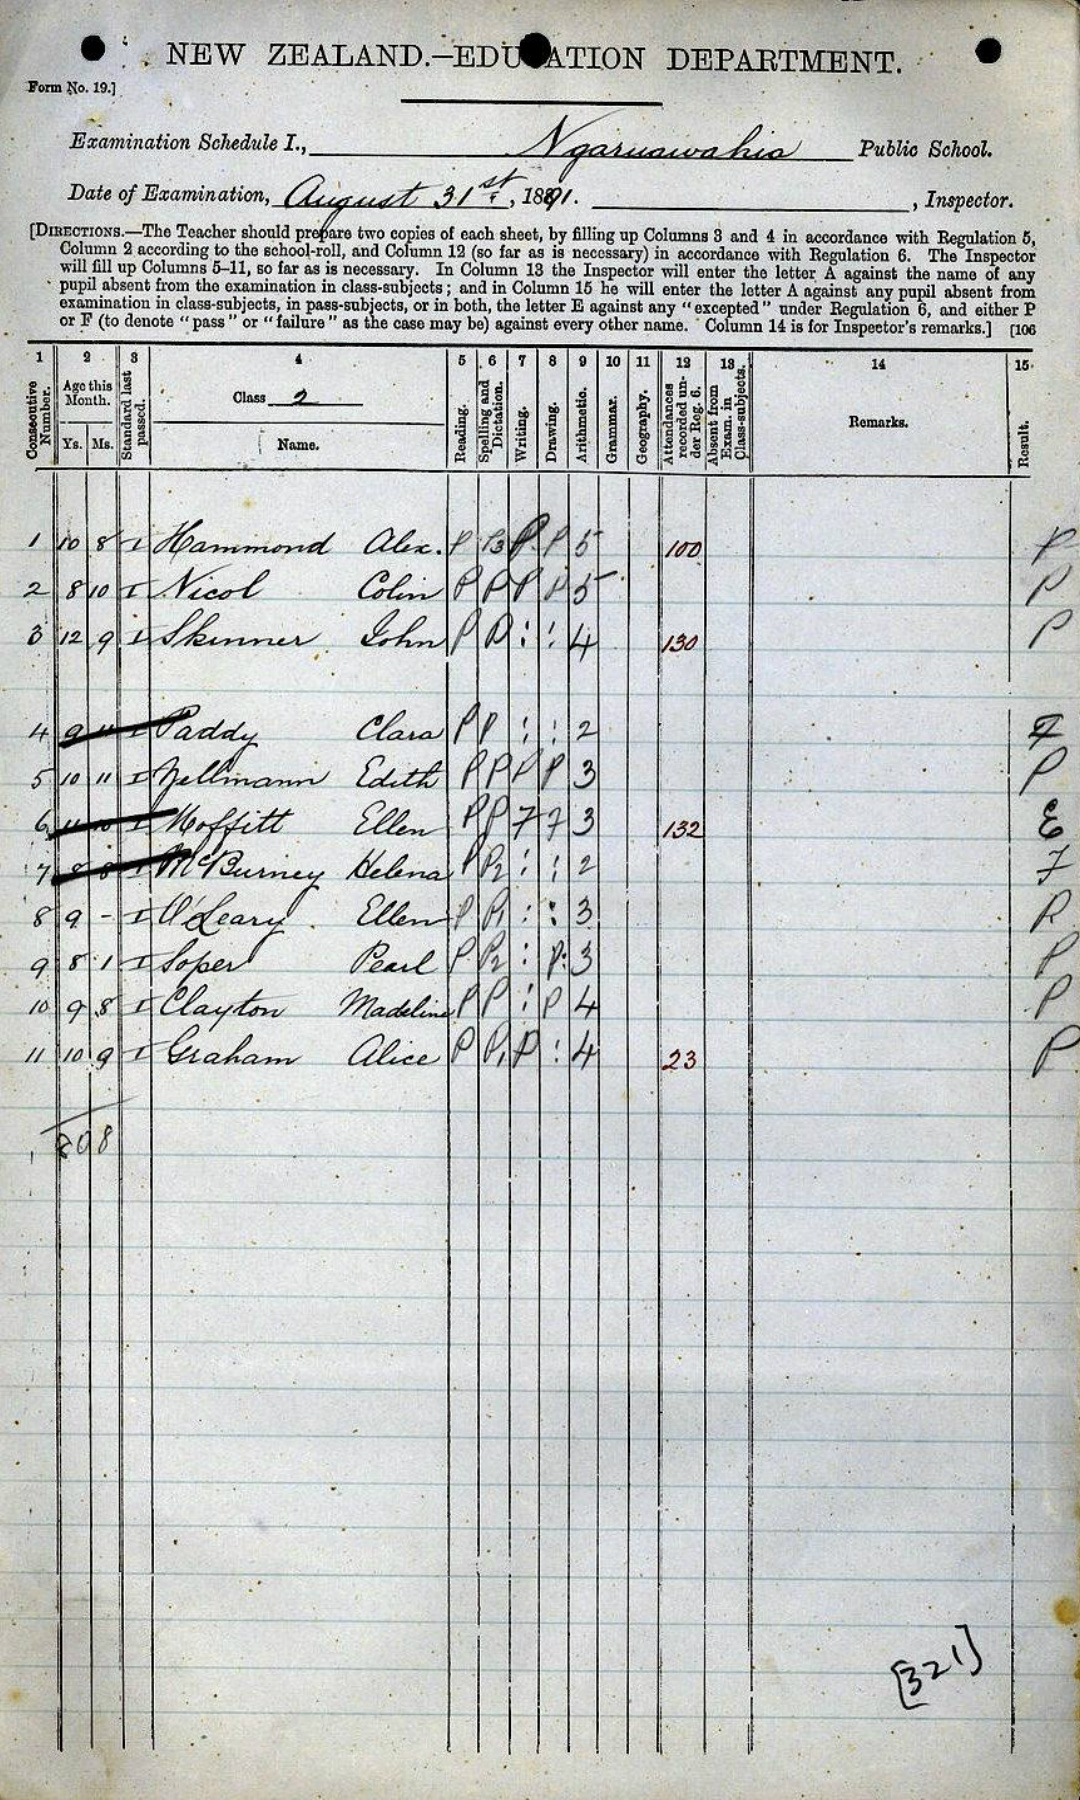 NEW ZEALAND.—EDUCATION DEPARTMENT.
Form No. 19.]
Examination Schedule I., Ngaruawahia Public School.
Date of Examination, August 31st, 1891. , Inspector.
[DIRECTIONS.—The Teacher should prepare two copies of each sheet, by filling up Columns 3 and 4 in accordance with Regulation 5,
Column 2 according to the school-roll, and Column 12 (so far as is necessary) in accordance with Regulation 6. The Inspector
will fill up Columns 5–11, so far as is necessary. In Column 13 the Inspector will enter the letter A against the name of any
pupil absent from the examination in class-subjects; and in Column 15 he will enter the letter A against any pupil absent from
examination in class-subjects, in pass-subjects, or in both, the letter E against any "excepted" under Regulation 6, and either P
or F (to denote "pass" or "failure" as the case may be) against every other name. Column 14 is for Inspector's remarks.] [106
1 2 3 4 5 6 7 8 9 10 11 12 13 14 15
Consecutive Number. Age this Month. Ys. Ms. Standard last passed. Class 2 Name. Reading. Spelling and Dictation. Writing. Drawing. Arithmetic. Grammar. Geography. Attendances recorded under Reg. 6. Absent from Exam. in Class-subjects. Remarks. Result.
1 10 8 I Hammond Alex. P P3 P P 5 100 P
2 8 10 I Nicol Colin P P P P 5 P
3 12 9 I Skinner John P P : : 4 130 P
4 9 11 I Paddy Clara P P : : 2 F
5 10 11 I Zellmann Edith P P P P 3 P
6 11 10 I Moffitt Ellen P P F F 3 132 E
7 8 8 I McBurney Helena P P2 : : 2 F
8 9 - I O'Leary Ellen P P1 : : 3 P
9 8 1 I Soper Pearl P P2 : P: 3 P
10 9 8 I Clayton Madeline P P : P 4 P
11 10 9 I Graham Alice P P1 P : 4 23 P
80 8
[321]